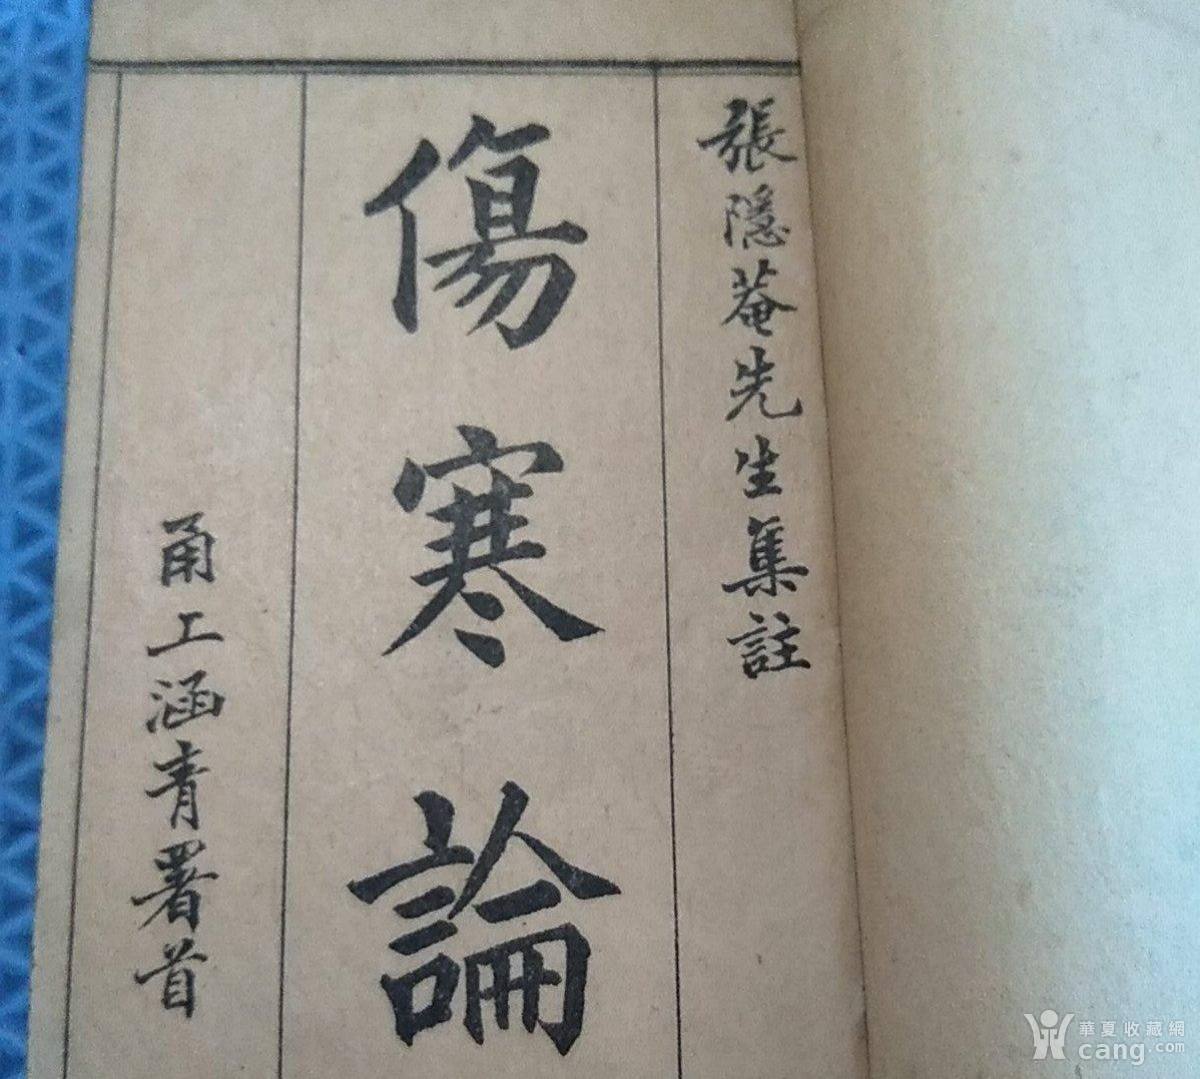 張隱菴先生集註
傷寒論
甬上涵青署首
華夏收藏網
cang.com